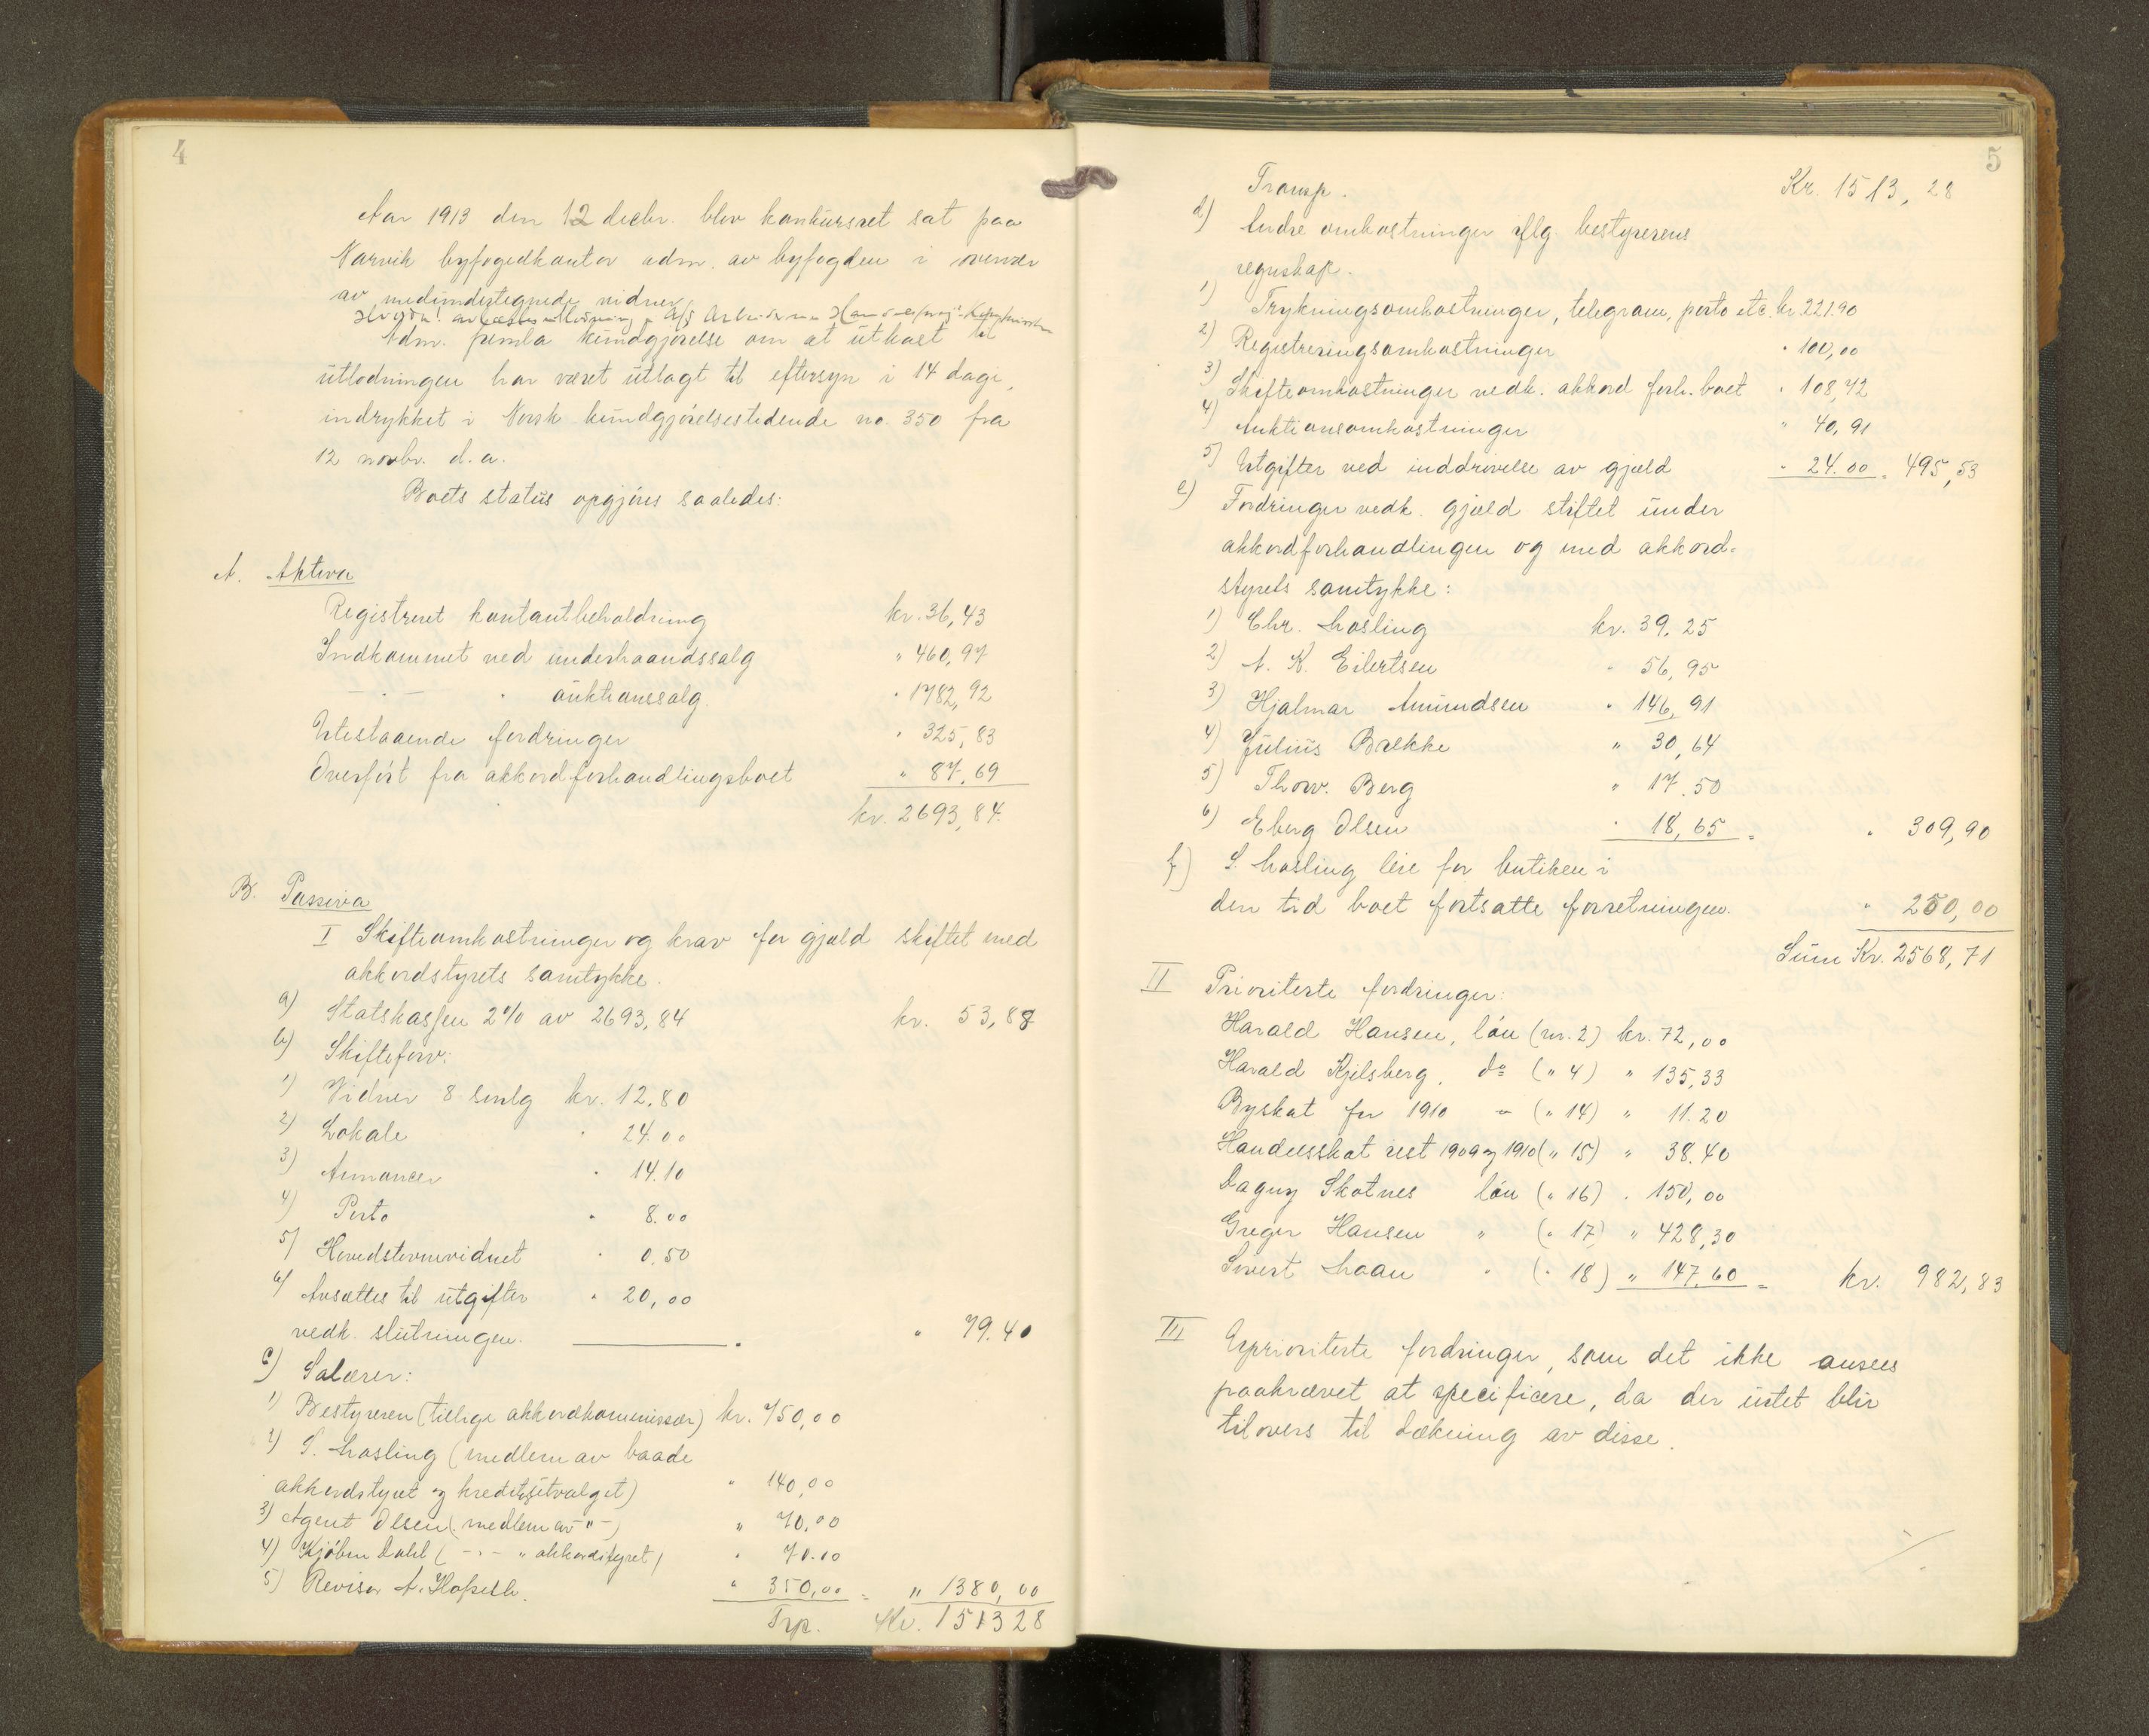 4
Aar 1913 den 12 decbr. blev konkursret sat paa
Narvik byfogedkontor adm. av byfogden i overvær
av medundertegnede vidner.
Hvorda! avsattes utlodning i A/S
Adm. fremla kundgjørelse om at utkast til
utlodningen har været utlagt til eftersyn i 14 dage,
indrykket i Norsk kundgjørelsestidende no. 350 fra
12 novbr. d. a.
Boets status opgjøres saaledes:
A. Aktiva
Registreret kontantbeholdning kr. 36,43
Indkommet ved underhaandssalg " 460,97
— " — " auktionssalg " 1782,92
Utestaaende fordringer " 325,83
Overført fra akkordforhandlingsboet " 87,69
kr. 2693,84.
B. Passiva
I Skifteomkostninger og krav for gjæld skiftet med
akkordstyrets samtykke.
a) Statskassen 2% av 2693,84 kr. 53,88
b) Skifteforv:
1) Vidner 8 smlg kr. 12.80
2) Lokale " 24.00
3) Annoncer " 14.10
4) Porto " 8.00
5) Hovedstevnevidnet " 0.50
6) Avsættes til utgifter " 20,00
vedk. slutningen. " 79.40
c) Salærer:
1) Bestyreren (tillige akkordkommissær) kr. 750,00
2) S. Mosling (medlem av baade
akkordstyret og kreditutvalget) " 140,00
3) Agent Olsen (medlem av — " —) " 70,00
4) Kjøbm Dahl ( — " — " akkordstyret) " 70.00
5) Revisor A. " 350,00 = " 1380,00
Trp. Kr. 151328
5
Transp. Kr. 1513,28
d) Andre omkostninger iflg. bestyrerens
regnskap.
1) Trykningsomkostninger, telegram, porto etc. kr. 221.90
2) Registreringsomkostninger " 100,00
3) Skifteomkostninger vedk. akkord forh. boet " 108,72
4) Auktionsomkostninger " 40,91
5) Utgifter ved inddrivelse av gjæld " 24.00 = 495,53
e) Fordringer vedk. gjæld stiftet under
akkordforhandlingen og med akkord-
styrets samtykke:
1) Chr. Mosling kr. 39.25
2) A. K. Eilertsen " 56,95
3) Hjalmar Amundsen " 146,91
4) Julius Brække " 30,64
5) Thorv. Berg " 17.50
6) Eberg Olsen " 18,65 = " 309,90
f) S. Mosling leie for butiken i
den tid boet fortsatte forretningen. " 250,00
Sum Kr. 2568,71
II Prioriterte fordringer:
Harald Hansen, løn (nr. 2) kr. 72,00
Harald Kjelsberg, do (" 4) " 135,33
Byskat for 1910 " (" 14) " 11.20
Handelsskat rest 1909 og 1910 (" 15) " 38.40
Dagny Skotnes løn (" 16) " 150,00
Greger Hansen " (" 17) " 428,30
Sivert Moan " (" 18) " 147,60 = kr. 982,83
III Uprioriterte fordringer, som det ikke ansees
paakrævet at specificere, da der intet blir
tilovers til dækning av disse.